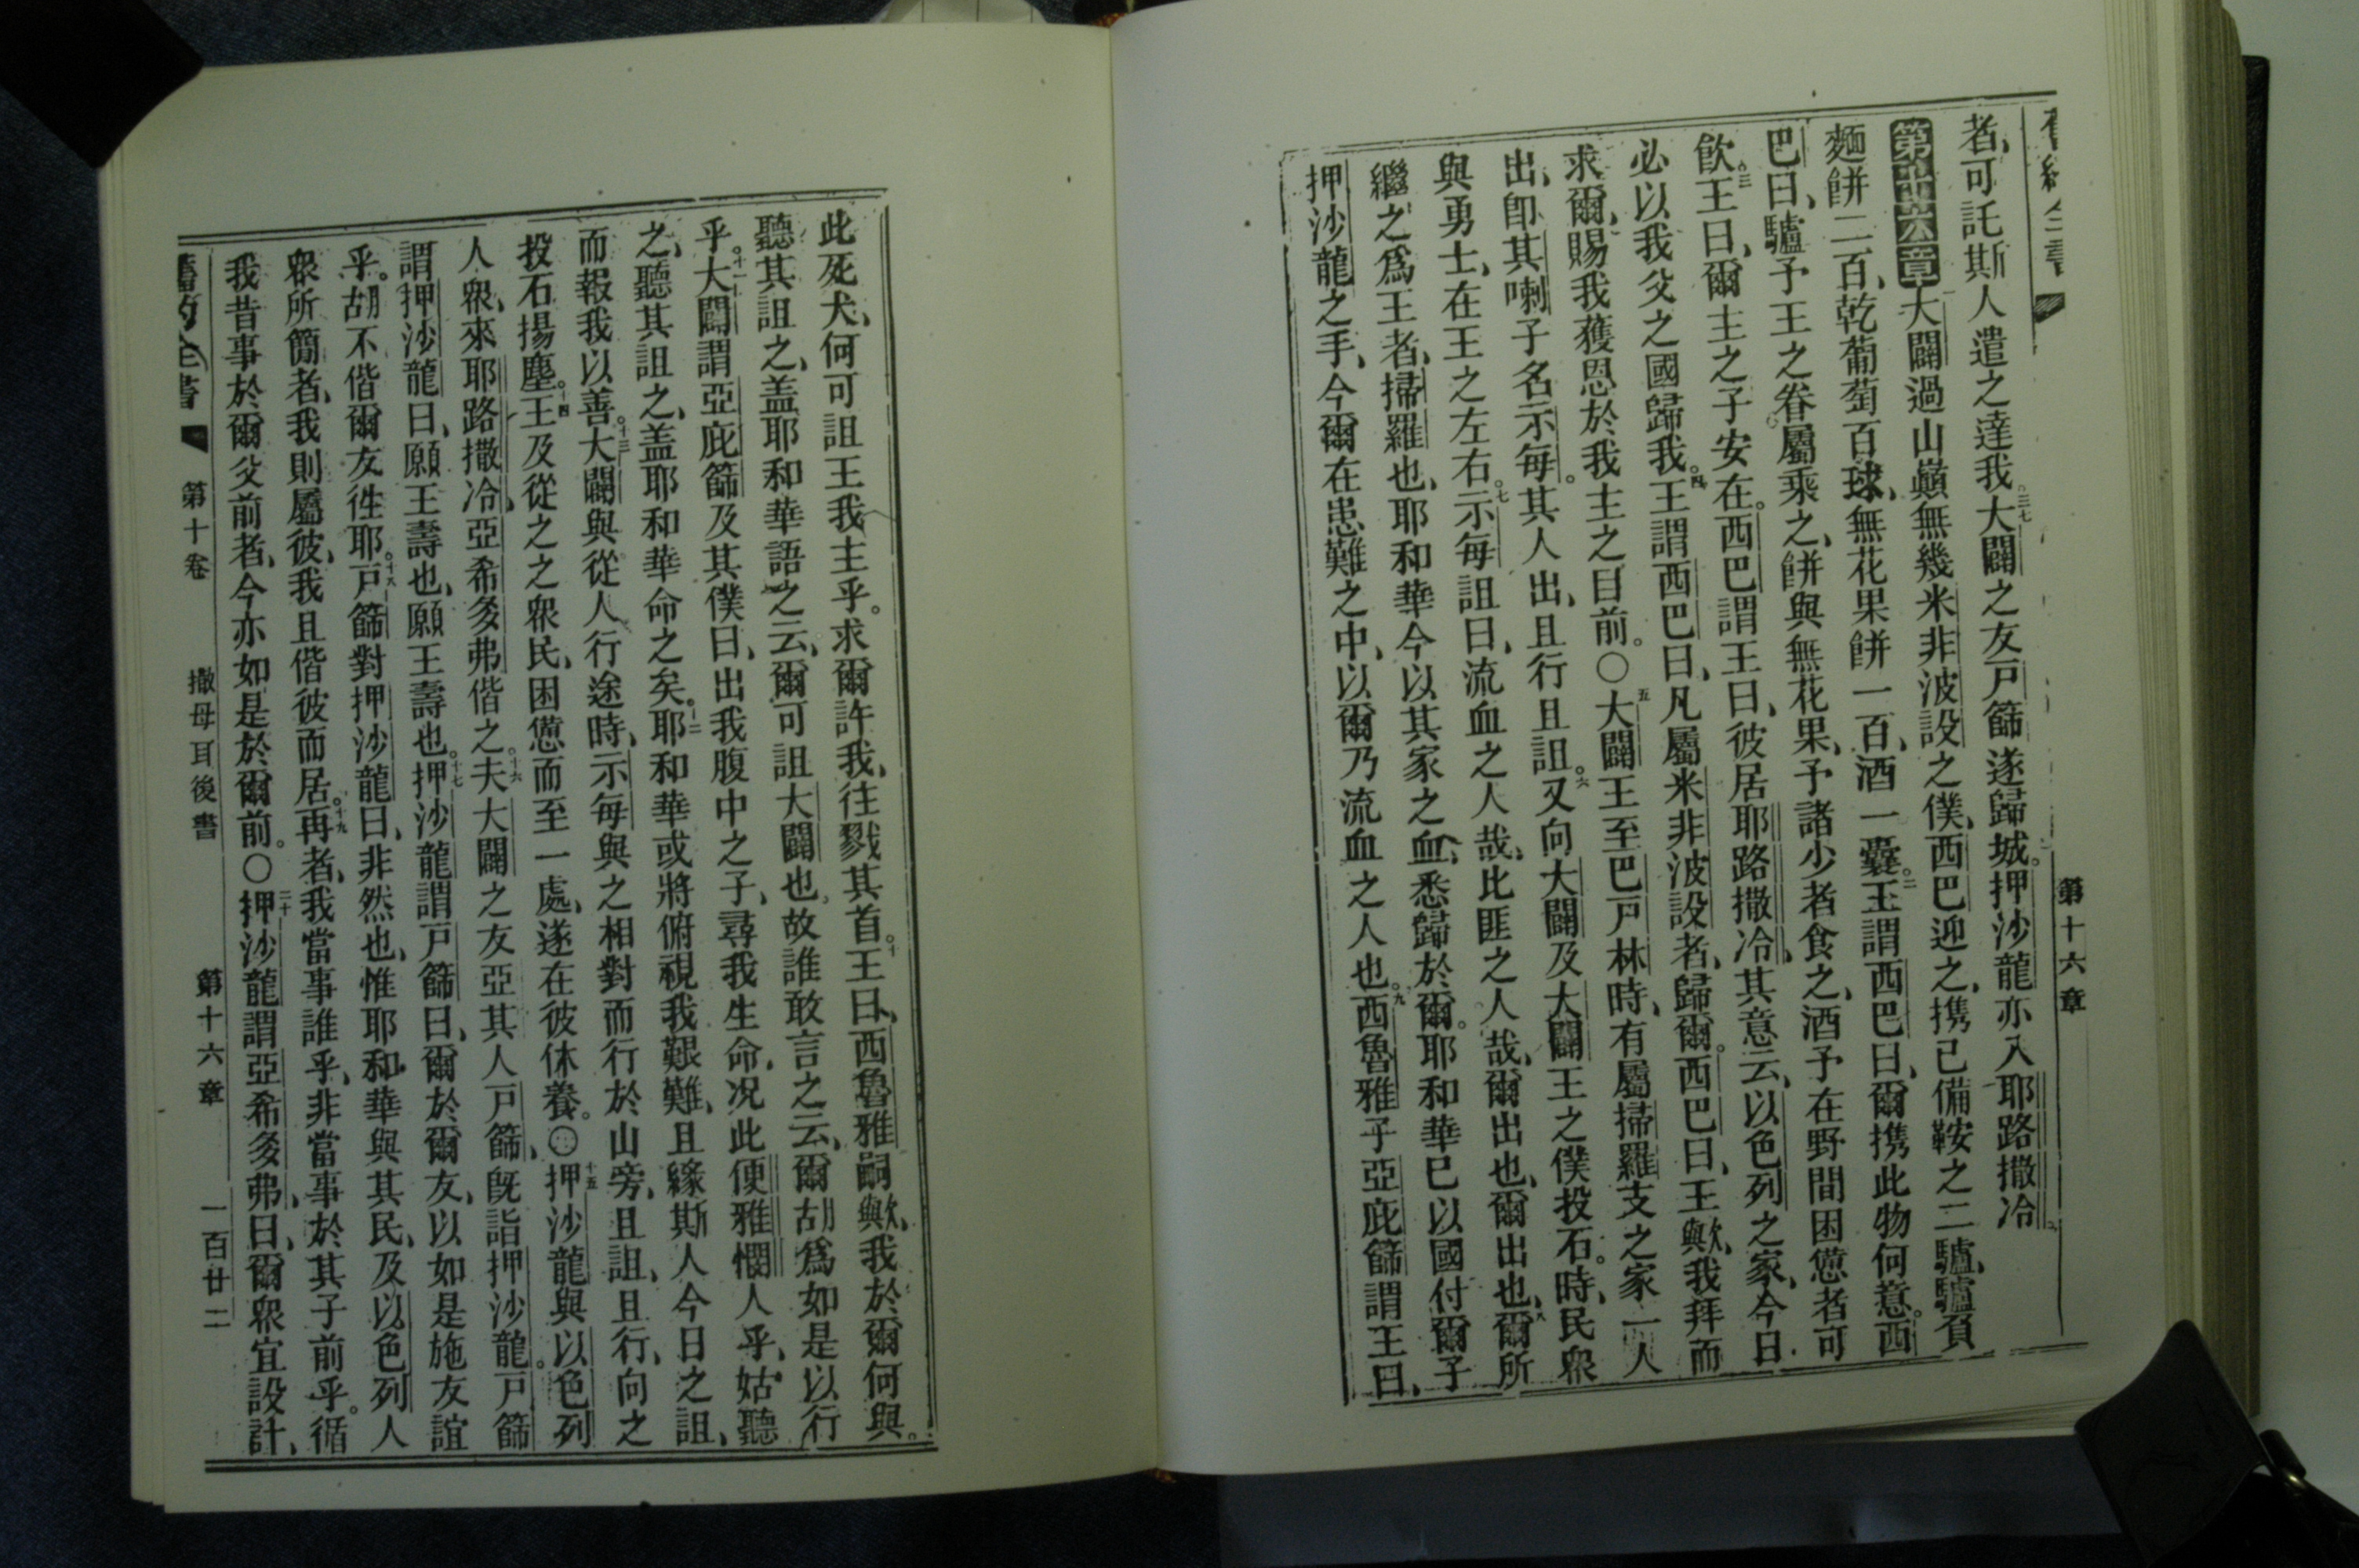 舊約全書
第十六章
者、可託斯人遣之達我。三七大闢之友戸篩遂歸城。押沙龍亦入耶路撒冷。
第十六章 一大闢過山巔無幾、米非波設之僕西巴迎之、携已備鞍之二驢、驢負
麵餅二百、乾葡萄百球、無花果餅一百、酒一囊。二王謂西巴曰、爾携此物何意。西
巴曰、驢予王之眷屬乘之、餅與無花果、予諸少者食之、酒予在野間困憊者可
飲。三王曰、爾主之子安在。西巴謂王曰、彼居耶路撒冷、其意云、以色列之家、今日
必以我父之國歸我。四王謂西巴曰、凡屬米非波設者、歸爾。西巴曰、王歟、我拜而
求爾、賜我獲恩於我主之目前。○五大闢王至巴戸林時、有屬掃羅支之家一人
出、卽其喇子名示每。其人出、且行且詛。六又向大闢及大闢王之僕投石。時、民衆
與勇士、在王之左右。七示每詛曰、流血之人哉、比匪之人哉、爾出也、爾出也、八爾所
繼之爲王者、掃羅也、耶和華今以其家之血、悉歸於爾。耶和華已以國付爾子
押沙龍之手、今爾在患難之中、以爾乃流血之人也。九西魯雅子亞庇篩謂王曰、
此死犬、何可詛王我主乎。求爾許我、往戮其首。十王曰、西魯雅嗣歟、我於爾何與。
聽其詛之、盖耶和華語之云、爾可詛大闢也。故誰敢言之云、爾胡爲如是以行
乎。十一大闢謂亞庇篩及其僕曰、出我腹中之子、尋我生命、况此便雅憫人乎、姑聽
之、聽其詛之、盖耶和華命之矣。十二耶和華或將俯視我艱難、且緣斯人今日之詛、
而報我以善。十三大闢與從人行途時、示每與之相對而行於山旁、且詛、且行、向之
投石揚塵。十四王及從之之衆民、困憊而至一處、遂在彼休養。○十五押沙龍與以色列
人衆、來耶路撒冷、亞希多弗偕之。十六夫大闢之友亞其人戸篩、旣詣押沙龍。戸篩
謂押沙龍曰、願王壽也、願王壽也。十七押沙龍謂戸篩曰、爾於爾友、以如是施友誼
乎。胡不偕爾友徃耶。十八戸篩對押沙龍曰、非然也、惟耶和華與其民、及以色列人
衆所簡者、我則屬彼、我且偕彼而居。十九再者、我當事誰乎、非當事於其子前乎。循
我昔事於爾父前者、今亦如是於爾前。○二十押沙龍謂亞希多弗曰、爾衆宜設計、
舊約全書
第十卷
撒母耳後書
第十六章
一百廿二